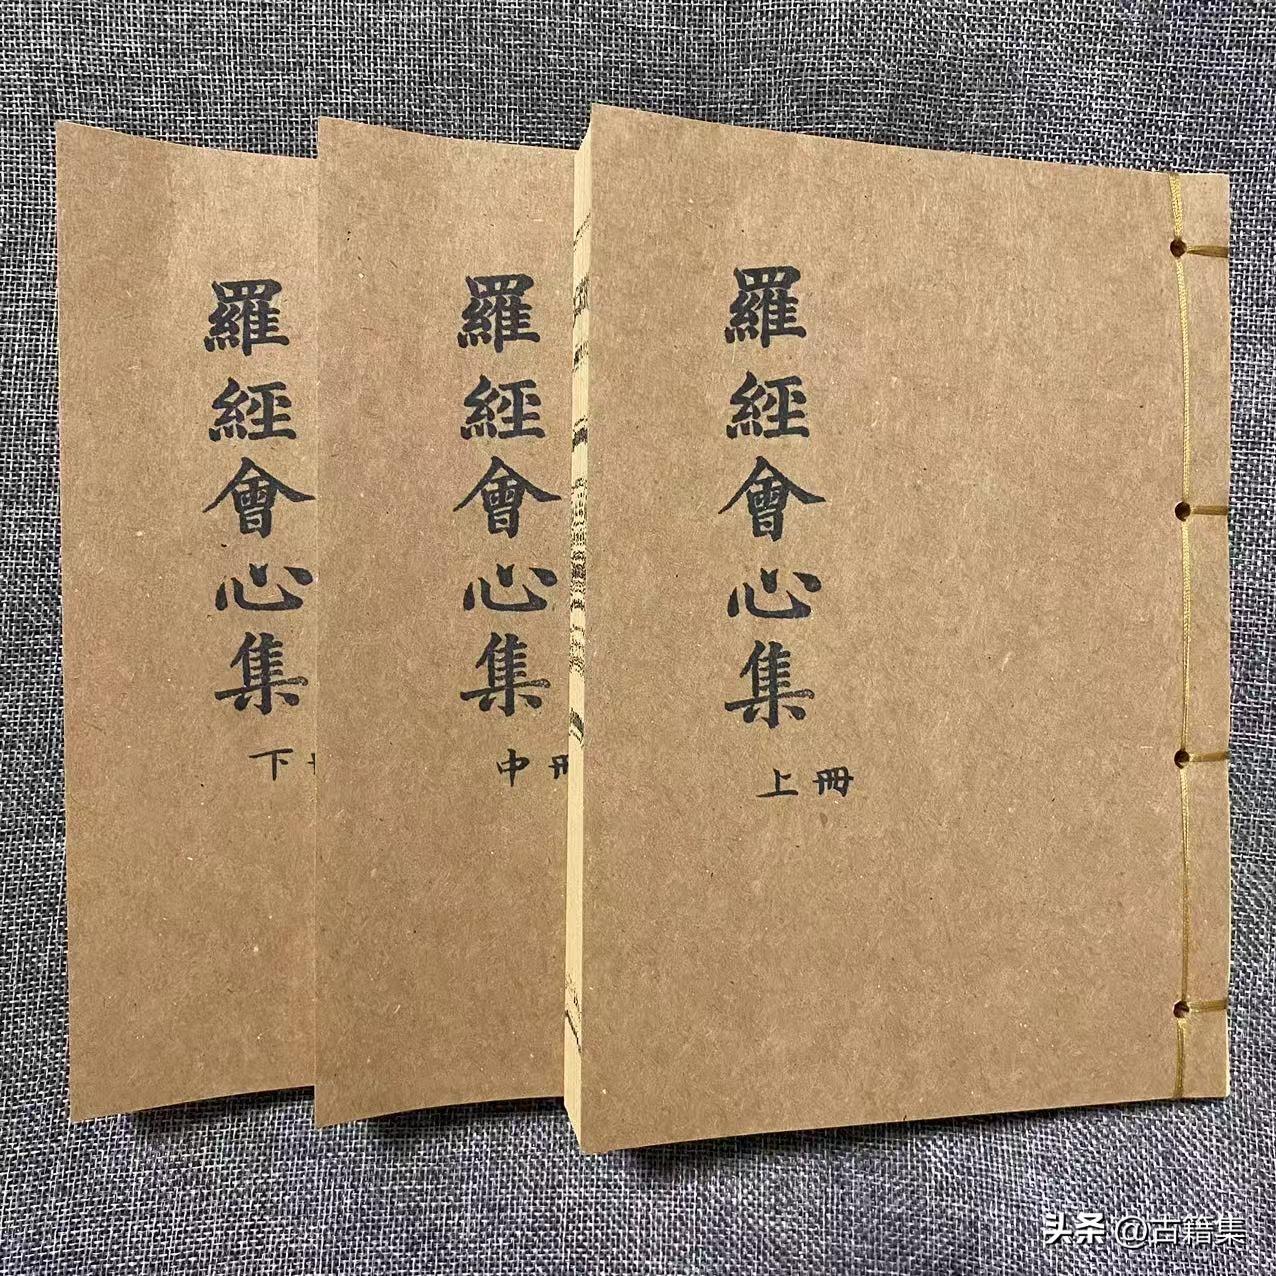 羅經會心集
上冊
羅經會心集
中冊
羅經會心集
下
头条 @古籍集